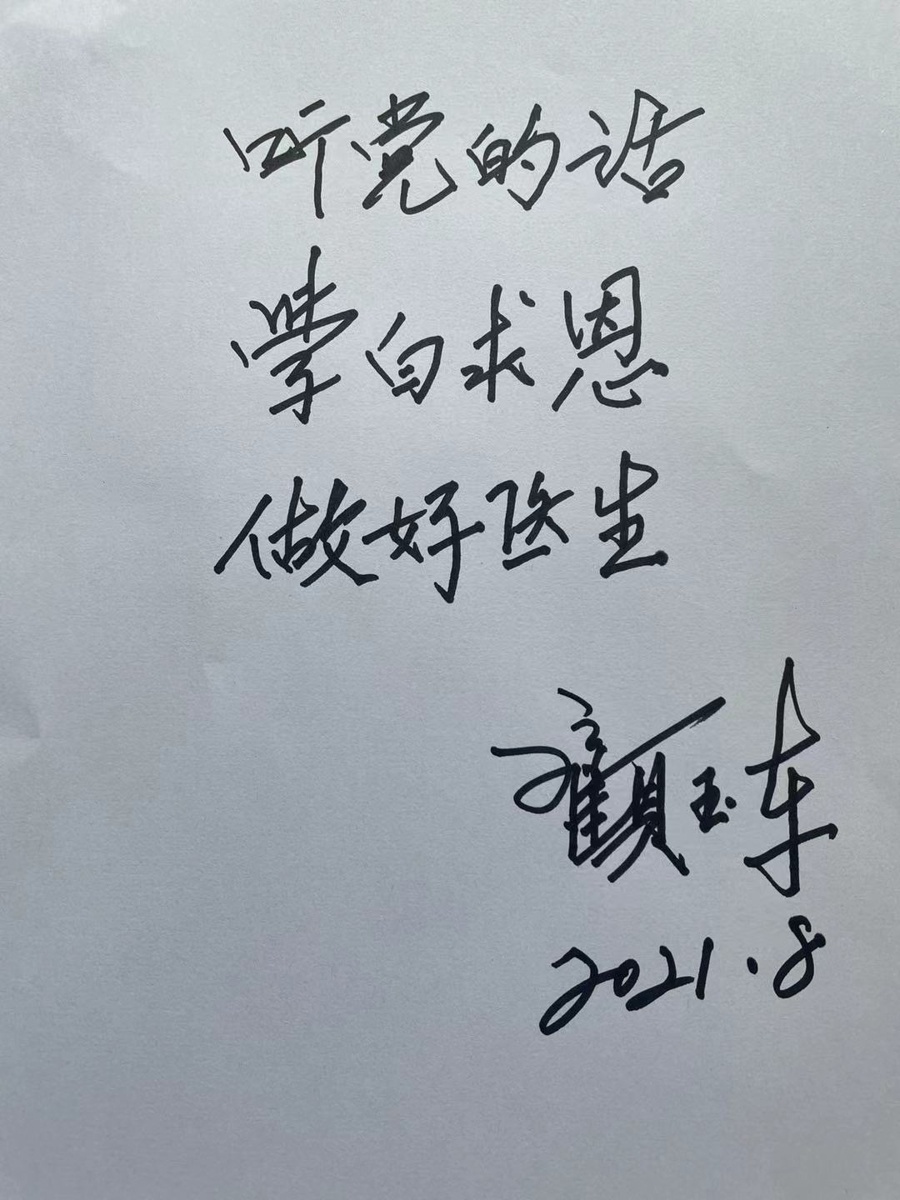 听党的话
学白求恩
做好医生
顾玉东
2021.8